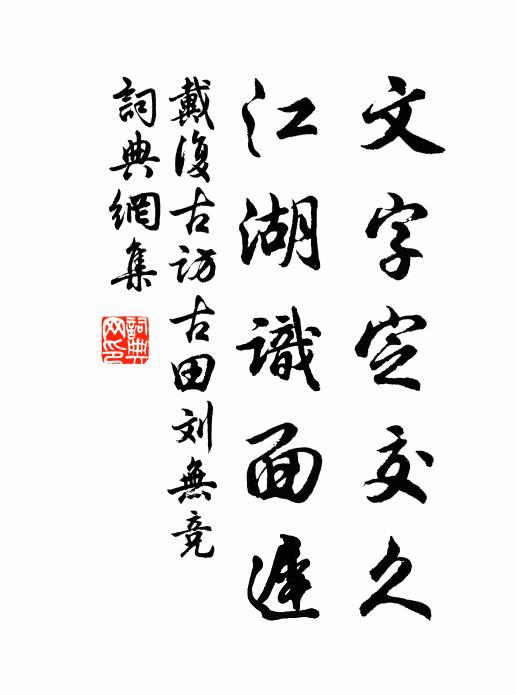 文字定交久
江湖識面遲
戴復古訪古田刘無竞
詞典網集
詞典網印